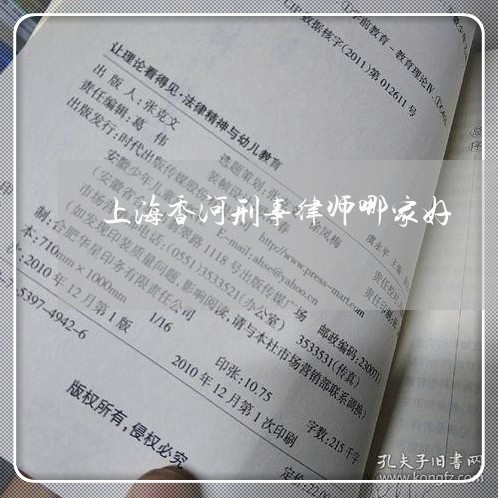 学前教育-教育理论Ⅳ.
CIP数据核字(2011)第 012611 号
让理论看得见·法律精神与幼儿教育
出 版 人:张克文
责任编辑:葛 伟 选题策划:张
出版发行:时代出版传媒股份 装帧设计
虞永平 主编
上海香河刑事律师哪家好
安徽少年儿 春 凤梅
E-mail:ahse@yahoo.cn http://www.press-mart.com
(安徽省 1118号出版传媒广场 邮政编码:230071)
市场营 电话:(0551)3533521(办公室) 3533531(传真)
(如发现印装质量问题,影响阅读,请与本社市场营销部联系调换)
制:合肥华星印务有限责任公司
本:710mm×1000mm 1/16 印张:10.75 字数:215千字
次:2010年12月第1版 2010年12月第1次印刷
7-5397-4942-6
定价:
版权所有,侵权必究
孔夫子旧书网
www.kongfz.com